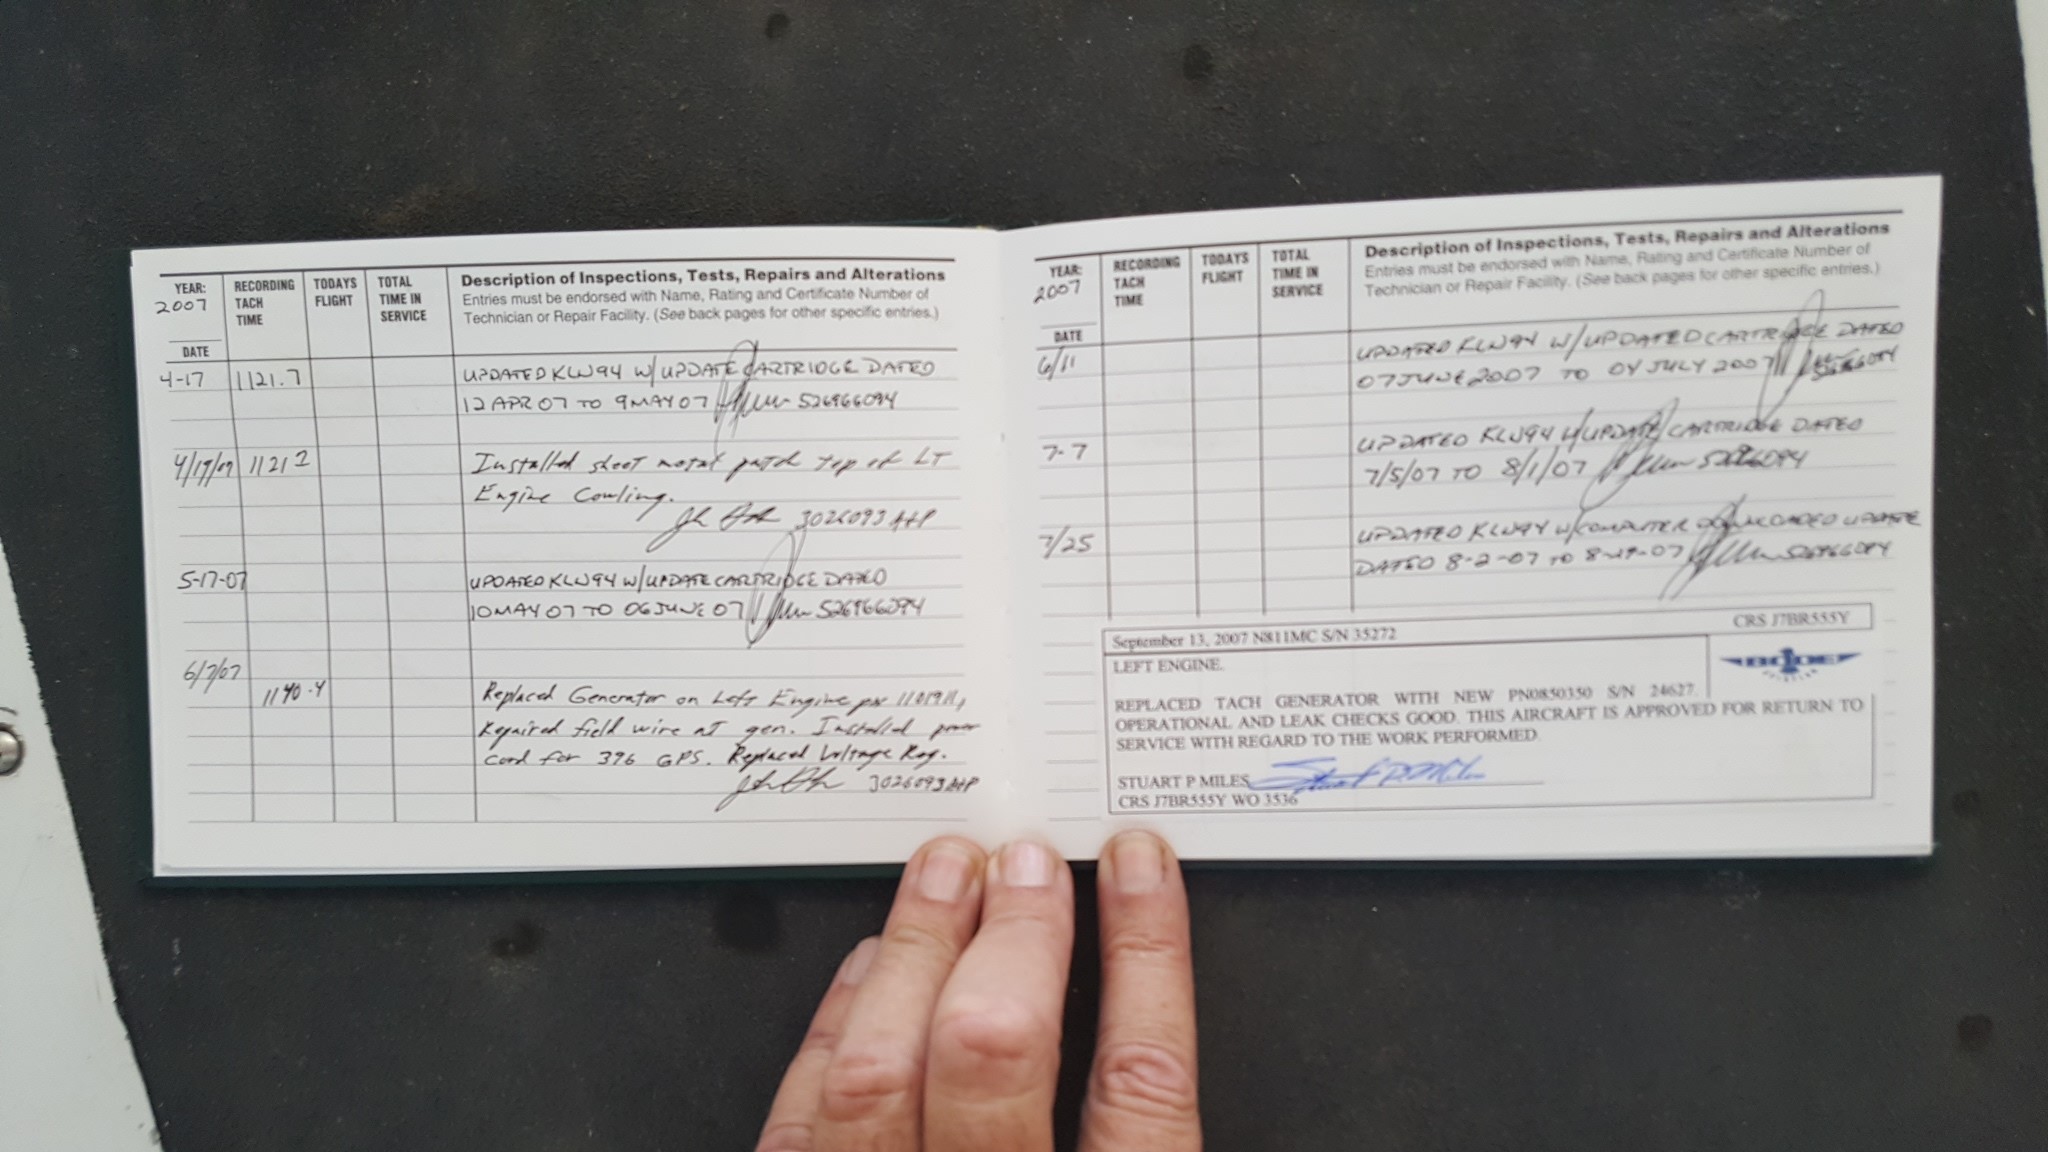 YEAR: 2007
DATE
RECORDING TACH TIME
TODAYS FLIGHT
TOTAL TIME IN SERVICE
Description of Inspections, Tests, Repairs and Alterations
Entries must be endorsed with Name, Rating and Certificate Number of
Technician or Repair Facility. (See back pages for other specific entries.)
4-17 1121.7 UPDATED KLN94 W/UPDATE CARTRIDGE DATED
12 APR 07 TO 9 MAY 07 526966094
4/17/07 1121.2 Installed sheet metal patch top of LT
Engine Cowling.
3026093 A+P
5-17-07 UPDATED KLN94 W/UPDATE CARTRIDGE DATED
10 MAY 07 TO 06 JUNE 07 526966094
6/7/07
1140.4 Replaced Generator on Left Engine pn
Repaired field wire at gen. Installed power
cord for 396 GPS. Replaced Voltage Reg.
3026093 A+P
YEAR: 2007
DATE
RECORDING TACH TIME
TODAYS FLIGHT
TOTAL TIME IN SERVICE
Description of Inspections, Tests, Repairs and Alterations
Entries must be endorsed with Name, Rating and Certificate Number of
Technician or Repair Facility. (See back pages for other specific entries.)
6/11 UPDATED KLN94 W/UPDATED CARTRIDGE DATED
07 JUNE 2007 TO 04 JULY 2007
7-7 UPDATED KLN94 W/UPDATE CARTRIDGE DATED
7/5/07 TO 8/1/07 526966094
7/25 UPDATED KLN94 W/COMPUTER DOWNLOADED UPDATE
DATED 8-2-07 TO 8-29-07 526966094
September 13, 2007 N811MC S/N 35272 CRS J7BR555Y
LEFT ENGINE.
REPLACED TACH GENERATOR WITH NEW PN0850350 S/N 24627.
OPERATIONAL AND LEAK CHECKS GOOD. THIS AIRCRAFT IS APPROVED FOR RETURN TO
SERVICE WITH REGARD TO THE WORK PERFORMED.
STUART P MILES Stuart P. Miles
CRS J7BR555Y WO 3536